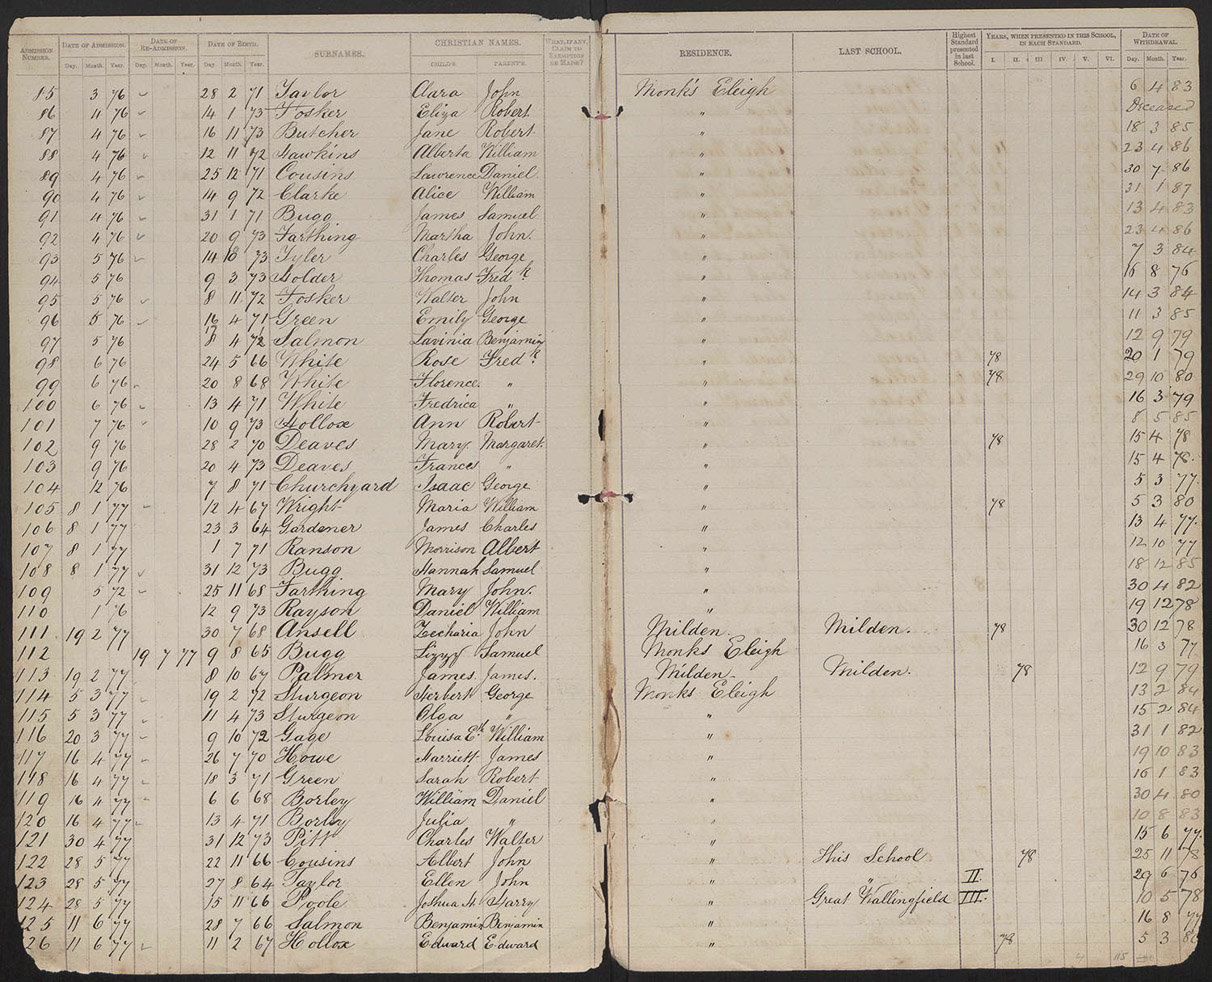 ADMISSION NUMBER. DATE OF ADMISSION. DATE OF RE-ADMISSION. DATE OF BIRTH. SURNAMES. CHRISTIAN NAMES. WHAT, IF ANY, CLAIM TO EXEMPTION OR MADE? RESIDENCE. LAST SCHOOL. Highest Standard presented in last School. YEARS, WHEN PRESENTED IN THIS SCHOOL, IN EACH STANDARD. DATE OF WITHDRAWAL.
Day. Month. Year. Day. Month. Year. Day Month. Year. CHILD'S. PARENT'S. I. II. III IV V. VI. Day. Month. Year.
85 3 76 28 2 71 Taylor Clara John Monks Eleigh 6 4 83
86 4 76 14 1 73 Fosker Eliza Robert " Deceased
87 4 76 16 11 73 Butcher Jane Robert " 18 3 85
88 4 76 12 11 72 Hawkins Alberta William " 23 4 86
89 4 76 25 12 71 Cousins Lawrence Daniel " 30 7 86
90 4 76 14 9 72 Clarke Alice William " 31 1 87
91 4 76 31 1 71 Bugg James Samuel " 13 4 83
92 4 76 20 9 73 Farthing Martha John. " 23 4 86
93 5 76 14 73 Tyler Charles George " 7 3 84
94 5 76 9 3 73 Holder Thomas Fredk " 16 8 76
95 5 76 8 11 72 Fosker Walter John " 14 3 84
96 5 76 16 4 71 Green Emily George " 11 3 85
97 5 76 4 72 Salmon Lavinia Benjamin " 12 9 79
98 6 76 24 5 66 White Rose Fredk " 78 20 1 79
99 6 76 20 8 68 White Florence " " 78 29 10 80
100 6 76 13 4 71 White Fredrica " " 16 3 79
101 7 76 10 9 73 Hollox Ann Robert " 8 5 85
102 9 76 28 2 70 Deaves Mary Margaret " 78 15 4 78
103 9 76 20 4 73 Deaves Frances " " 15 4 78
104 12 76 7 8 71 Churchyard Isaac George " 5 3 77
105 8 1 77 12 4 67 Wright Maria William " 78 5 3 80
106 8 1 77 23 3 64 Gardener James Charles " 13 4 77
107 8 1 77 1 7 71 Ranson Morrison Albert " 12 10 77
108 8 1 77 31 12 73 Bugg Hannah Samuel " 18 12 85
109 5 72 25 11 68 Farthing Mary John. " 30 4 82
110 1 12 9 73 Rayson Daniel William " 19 12 78
111 19 2 77 30 7 68 Ansell Zecharia John Milden Milden. 78 30 12 78
112 19 7 77 9 8 65 Bugg Lizzy Samuel Monks Eleigh 16 3 77
113 19 2 77 8 10 67 Palmer James James. Milden Milden. 78 12 9 79
114 5 3 77 19 2 72 Sturgeon Herbert George Monks Eleigh 13 2 84
115 5 3 77 11 4 73 Sturgeon Olga " " 15 2 84
116 20 3 77 9 10 72 Gage Louisa Eth William " 31 1 82
117 16 4 77 26 7 70 Howe Harriett James " 19 10 83
118 16 4 77 18 3 71 Green Sarah Robert " 16 1 83
119 16 4 77 6 6 68 Borley William Daniel " 30 4 80
120 16 4 77 13 4 71 Borley Julia " " 10 8 83
121 30 4 77 31 12 73 Pitt Charles Walter " 15 6 77
122 28 5 77 22 11 66 Cousins Albert John " This School 78 25 11 78
123 28 5 77 27 8 64 Taylor Ellen John " " II 29 6 76
124 28 5 77 15 11 66 Poole Joshua H Harry " Great Wallingfield III. 10 5 78
125 11 6 77 28 7 66 Salmon Benjamin Benjamin " 16 8 77
126 11 6 77 11 2 67 Hollox Edward Edward " 78 5 3 80
4 115